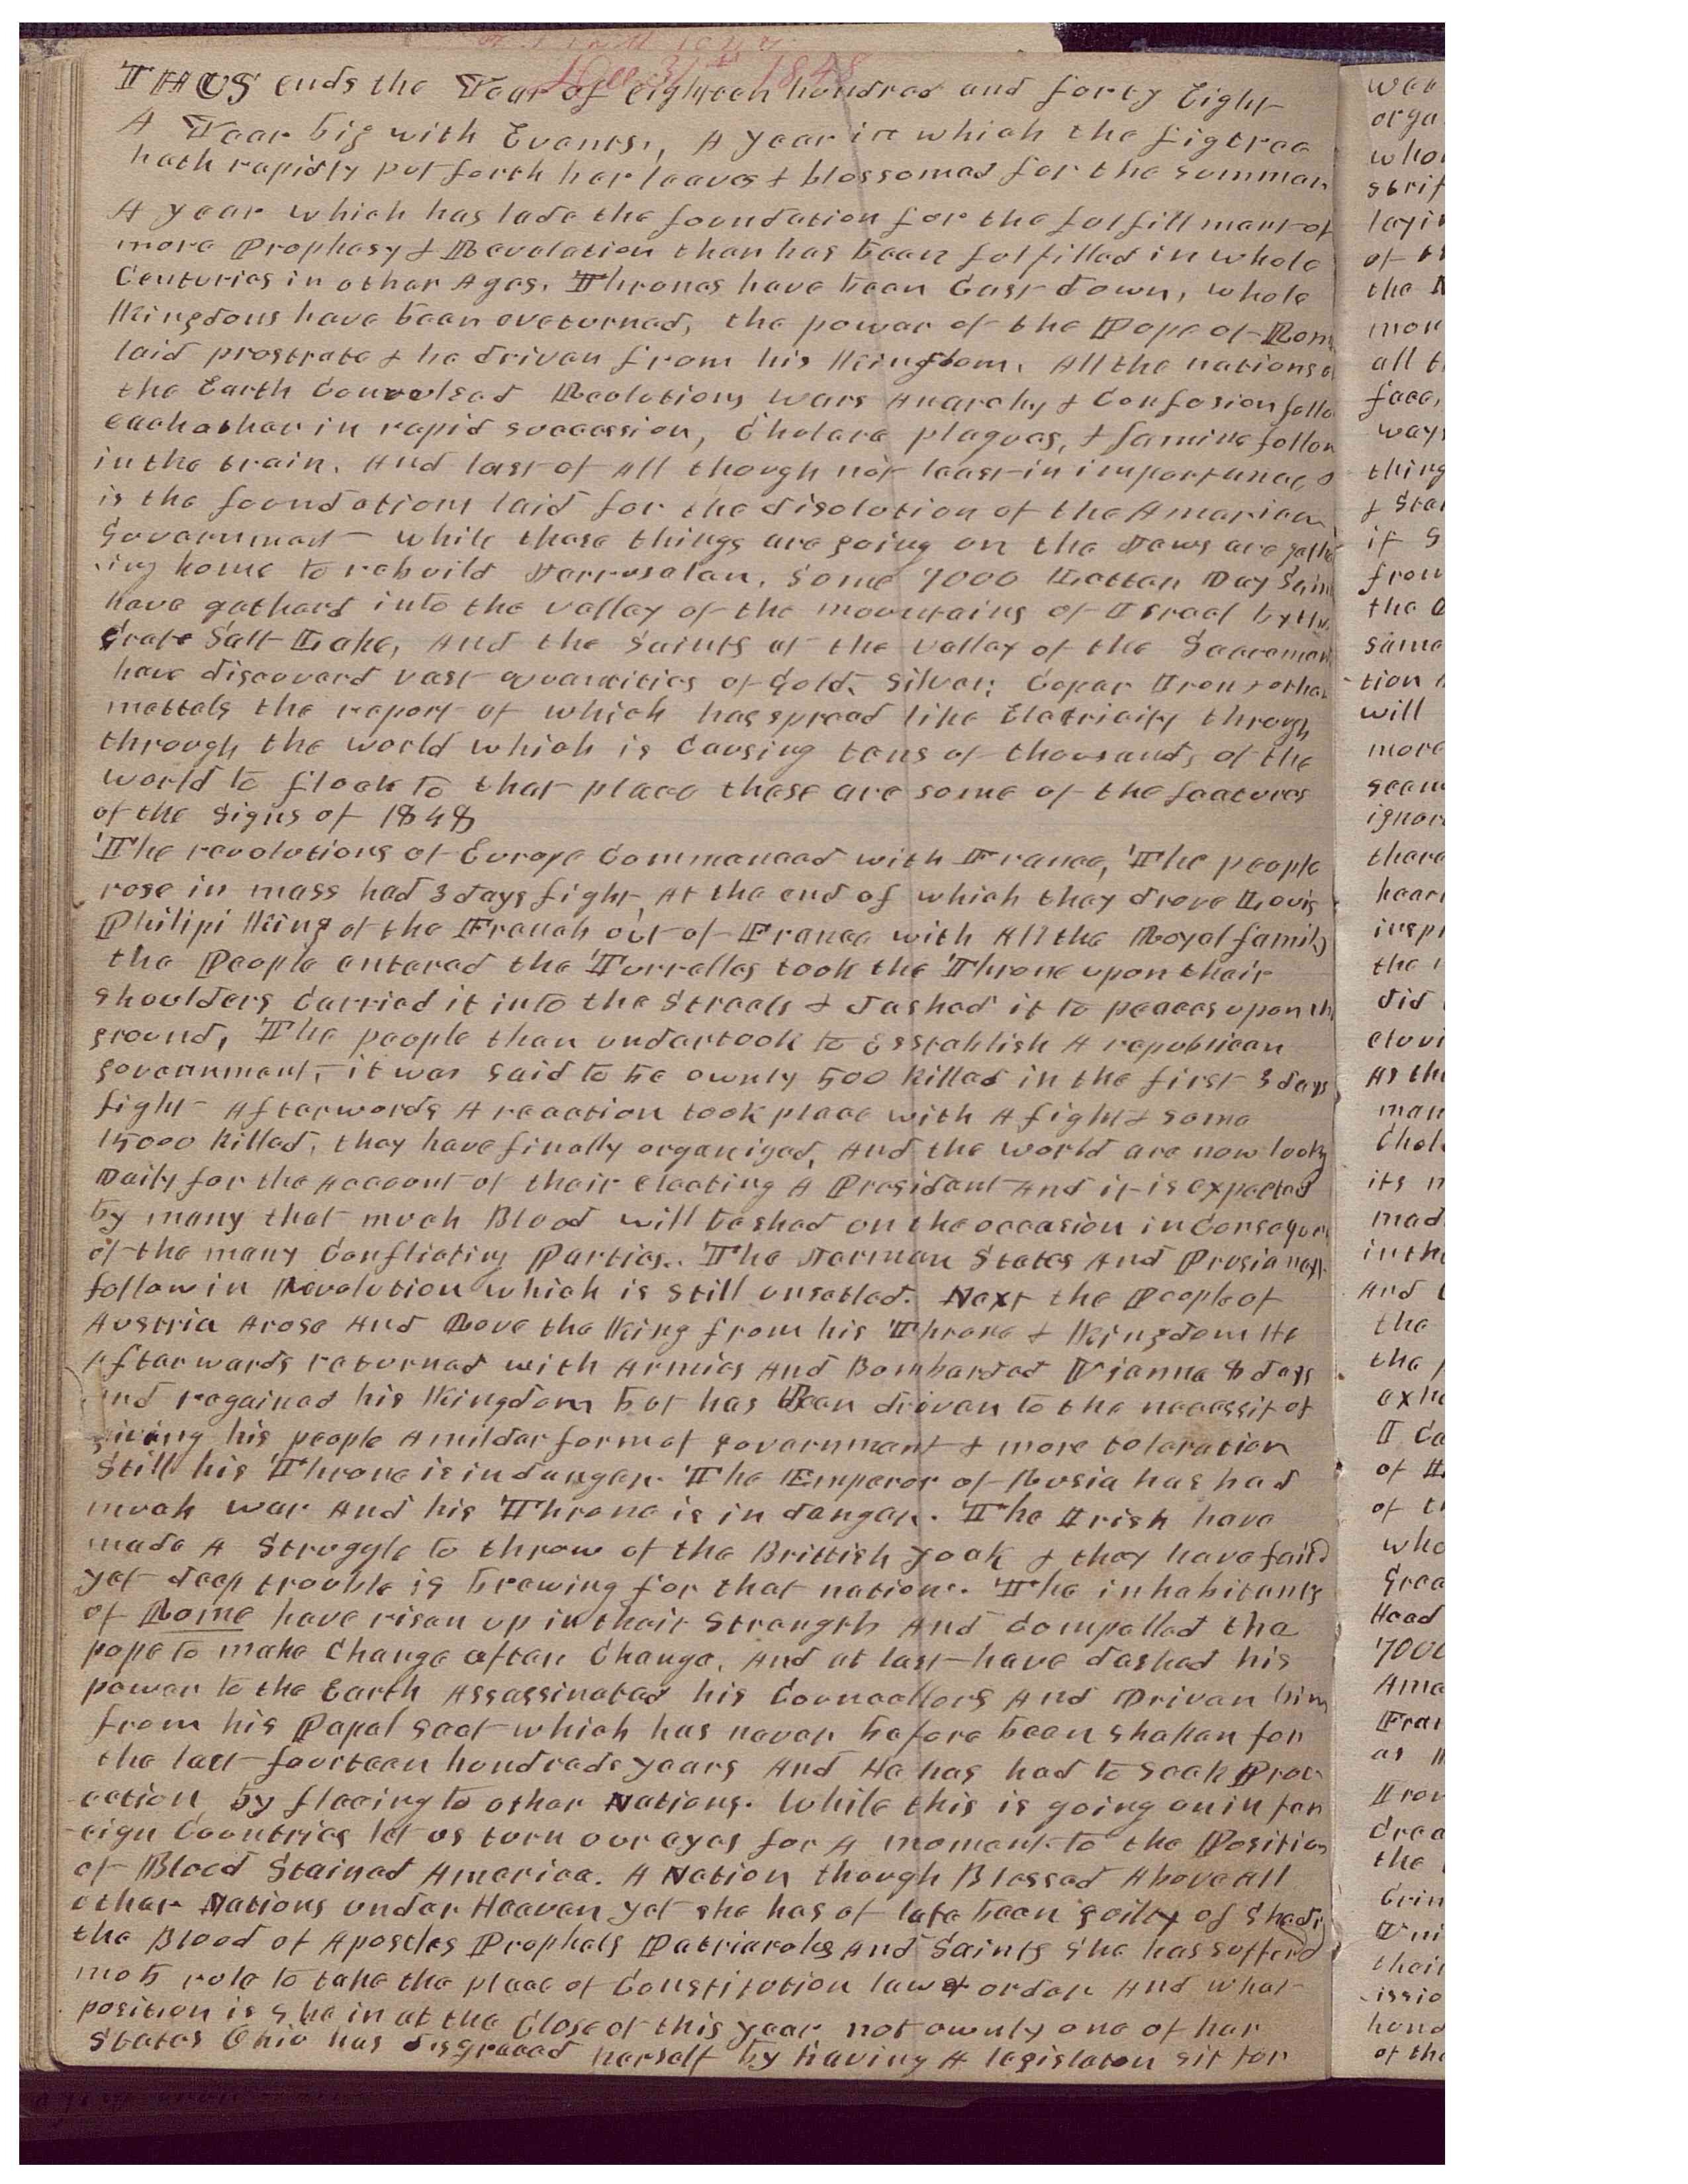 Dec 31st 1848
THUS ends the Year of eighteen hundred and forty Eight
A Year big with Events., A year in which the figtree
hath rapidly put forth her leaves & blossomed for the summer
A year which has lade the foundation for the fulfillment of
more Prophesy & Revelation than has been fulfilled in whole
Centuries in other Ages. Thrones have been Cast down, whole
Kingdoms have been overturned, the power of the Pope of Rom
laid prostrate & he driven from his Kingdom. All the nations o
the Earth Convulsed Reolutions wars Anarchy & Confusion follo
eachother in rapid succession, Cholera plagues, & famine follow
in the train. And last of All though not least in importance
is the foundations laid for the disolution of the American
Government while these things are going on the Jews are gathe
-ing home to rebuild Jerrusalam. Some 7000 Latter Day Sain
have gatherd into the valley of the mountains of Israel by the
grate Salt Lake, And the Saints at the valley of the Sacramen
have discoverd vast quantities of Gold, Silver; Coper Iron & other
mettals the report of which has spread like Elatricity through
through the world which is Causing tens of thousands of the
world to flock to that place these are some of the features
of the Signs of 1848
The revolutions of Europe Commenced with France, The people
rose in mass had 3 days fight At the end of which they drove Louis
Philipi King of the French out of France with All the Royal family
the People entered the Turrelles took the Throne upon their
shoulders Carried it into the Streets & dashed it to peaces upon th
ground, The people then undertook to Esstablish A republican
government, it was said to be ownly 500 killed in the first 3 days
fight Afterwords A reaction took place with A fight & some
15000 killed, they have finally organized, And the world are now looking
Daily for the Account of their electing A President And it is expected
by many that much Blood will be shed on the occasion in Consequen
of the many Conflicting Parties.. The Jerman States And Prusia next
follow in Revolution which is still unsetled. Next the People of
Austria Arose And Rove the King from his Throne & Kingdom He
Afterwards returned with Armies And Bombarded Vianna 8 days
And regained his Kingdom but has Been driven to the necessit of
giving his people A milder form of government & more toleration
Still his Throne is in danger. The Emperor of Rusia has had
much war And his Throne is in danger. The Irish have
made A Struggle to throw of the Brittish yoak & they have faild
yet deep trouble is brewing for that nation. The inhabitants
of Rome have risen up in their Strength And Compelled the
pope to make Change after Change, And at last have dashed his
power to the Earth Assassinated his Councellors And Driven him
from his Papal seat which has never before been shaken for
the last fourteen hundred years And He has had to seek Prot
-ection by fleeing to other Nations. While this is going on in for
-eign Countries let us turn our eyes for A moment to the Position
of Blood Stained America. A Nation though Blessed Above All
other Nations under Heaven yet she has of late been guilty of sheding
the Blood of Apostles Prophets Patriarchs And Saints She has sufferd
mob rule to take the place of Constitution law & order And what
position is she in at the Close of this year not ownly one of her
States Ohio has disgraced herself by having A legislator sit for